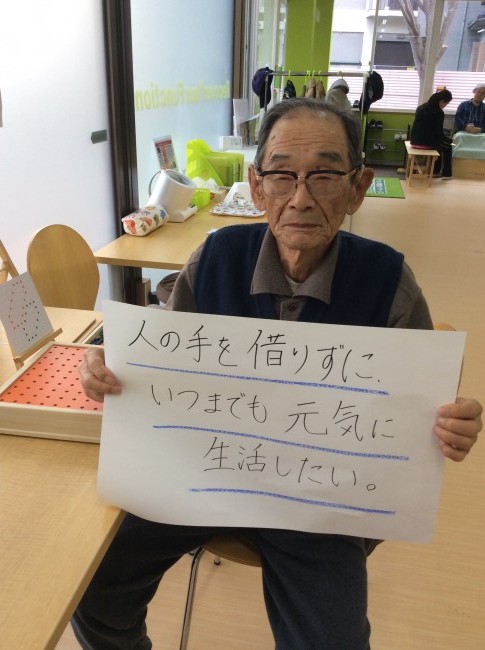 人の手を借りずに、
いつまでも元気に
生活したい。